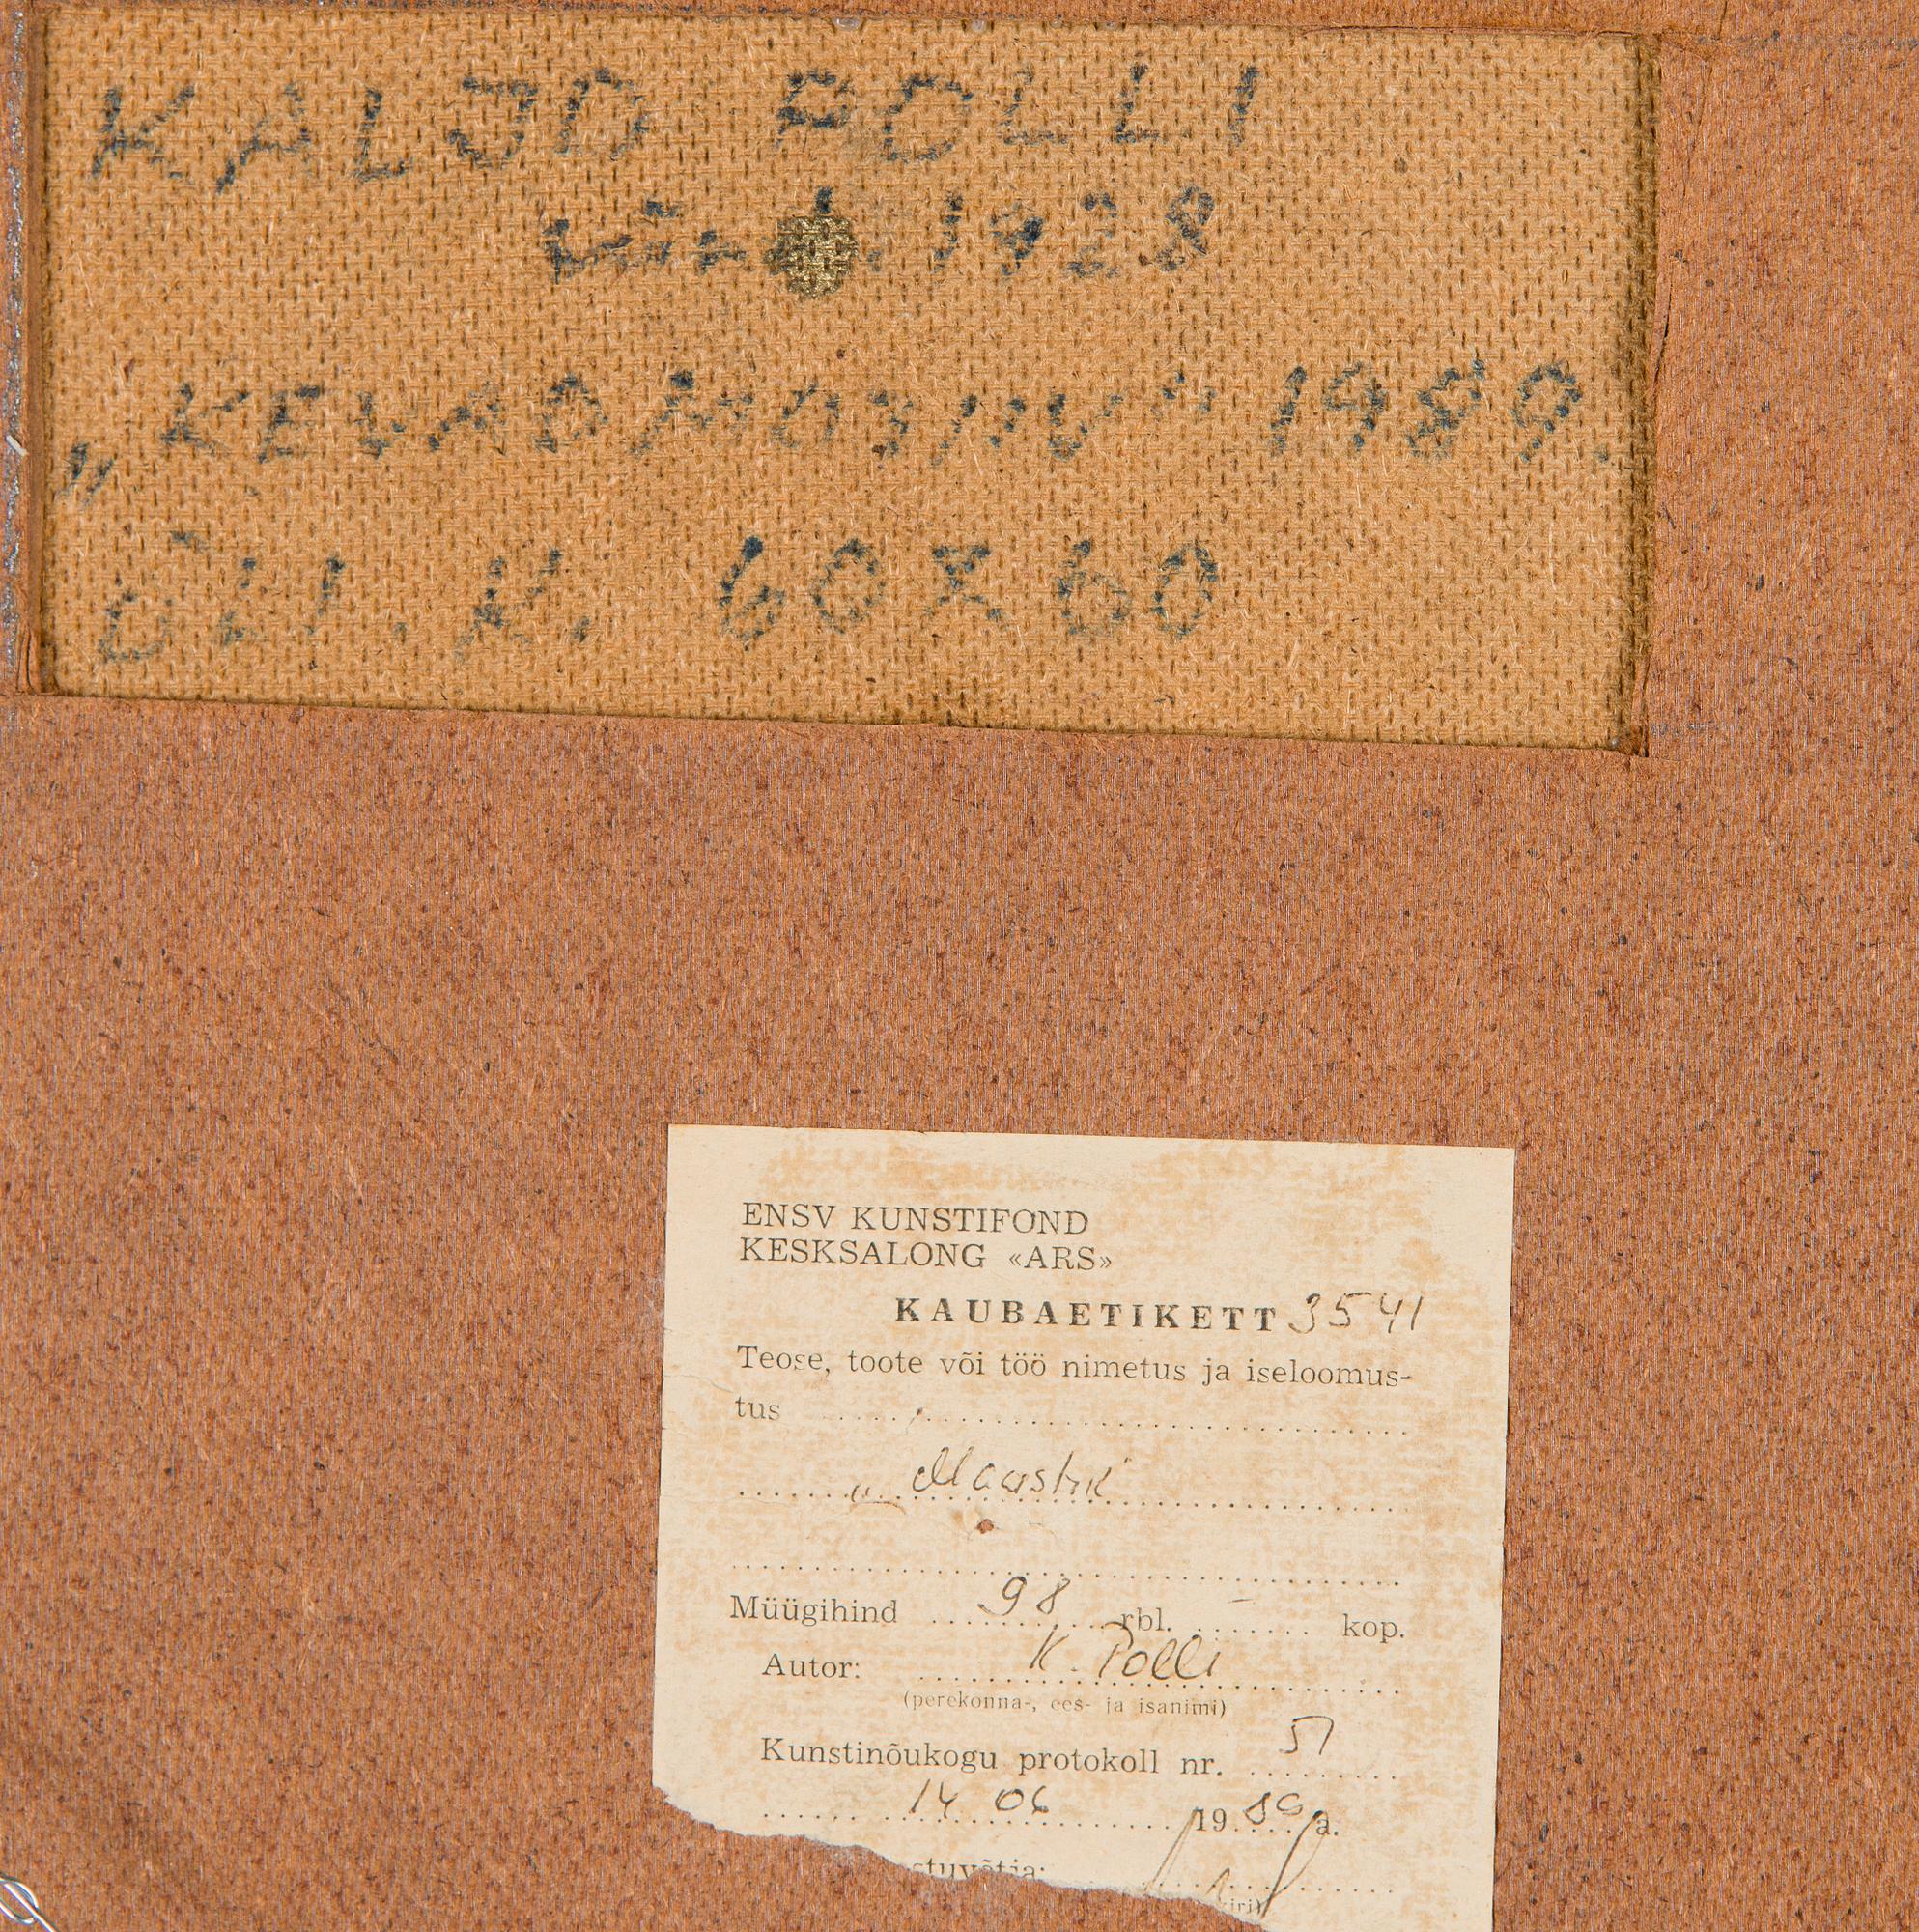 KALJO POLLI
sünd. 1928
„KEVADMOTIIV" 1989.
ÕLI. K. 60X60
ENSV KUNSTIFOND
KESKSALONG «ARS»
KAUBAETIKETT 3541
Teose, toote või töö nimetus ja iseloomus-
tus
„Maastik"
Müügihind 98 rbl. — kop.
Autor: K. Polli
(perekonna-, ees- ja isanimi)
Kunstinõukogu protokoll nr. 51
14 06 1989 a.
stuvõtja: